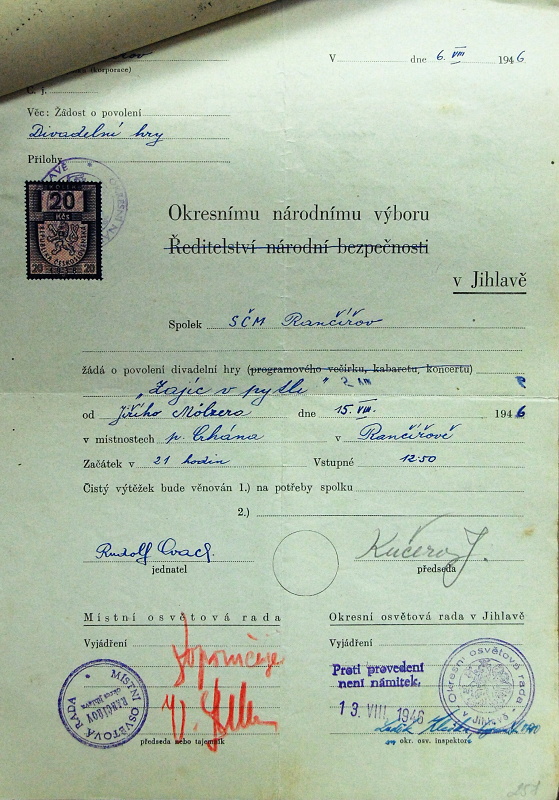 V dne 6. VIII 1946
(korporace)
Č. j.
Věc: Žádost o povolení
Divadelní hry
Přílohy
KOLEK
20
Kčs
REPUBLIKA ČESKOSLOVENSKÁ
20 20
Okresnímu národnímu výboru
Ředitelství národní bezpečnosti
v Jihlavě
Spolek SČM Rančířov
žádá o povolení divadelní hry (programového večírku, kabaretu, koncertu)
„Zajíc v pytli"
od Jiřího dne 15. VIII. 1946
v místnostech p. v Rančířově
Začátek v 21 hodin Vstupné 12.50
Čistý výtěžek bude věnován 1.) na potřeby spolku
2.)
Rudolf Kučera J.
jednatel předseda
Místní osvětová rada Okresní osvětová rada v Jihlavě
Vyjádření Vyjádření
Doporučuje
Proti provedení
není námitek.
13. VIII 1946
MÍSTNÍ OSVĚTOVÁ RADA
RANČÍŘOV
okres Jihlava
Okresní osvětová rada
V JIHLAVĚ
předseda nebo tajemník okr. osv. inspektor
258